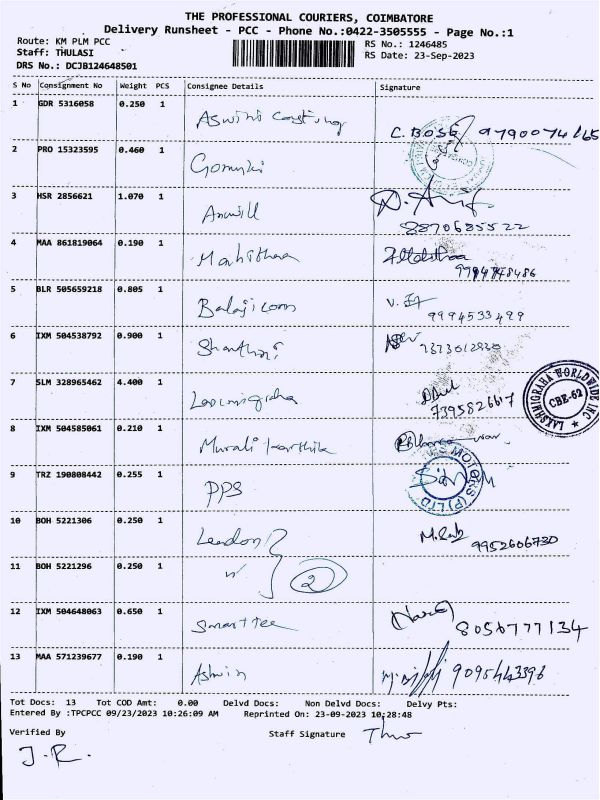 THE PROFESSIONAL COURIERS, COIMBATORE
Delivery Runsheet - PCC - Phone No.:0422-3505555 - Page No.:1
Route: KM PLM PCC RS No.: 1246485
Staff: THULASI RS Date: 23-Sep-2023
DRS No.: DCJB124648501
S No Consignment No Weight PCS Consignee Details Signature
1 GDR 5316058 0.250 1 C. BOSE
2 PRO 15323595 0.460 1 Gomuki
3 HSR 2856621 1.070 1
8870685522
4 MAA 861819064 0.190 1
5 BLR 505659218 0.805 1 Balaji corn
9994533499
6 IXM 504538792 0.900 1
7 SLM 328965462 4.400 1
7395826617
LAKSHMIGRAHA WORLDWIDE INC
CBE-62
8 IXM 504585061 0.210 1 Murali Karthik
9 TRZ 190808442 0.255 1 PPS
MOTORS (P) LTD
10 BOH 5221306 0.250 1 9952606730
11 BOH 5221296 0.250 1 2
12 IXM 504648063 0.650 1 8056777134
13 MAA 571239677 0.190 1 Ashwin
Tot Docs: 13 Tot COD Amt: 0.00 Delvd Docs: Non Delvd Docs: Delvy Pts:
Entered By :TPCPCC 09/23/2023 10:26:09 AM Reprinted On: 23-09-2023 10:28:48
Verified By Staff Signature
J.R.